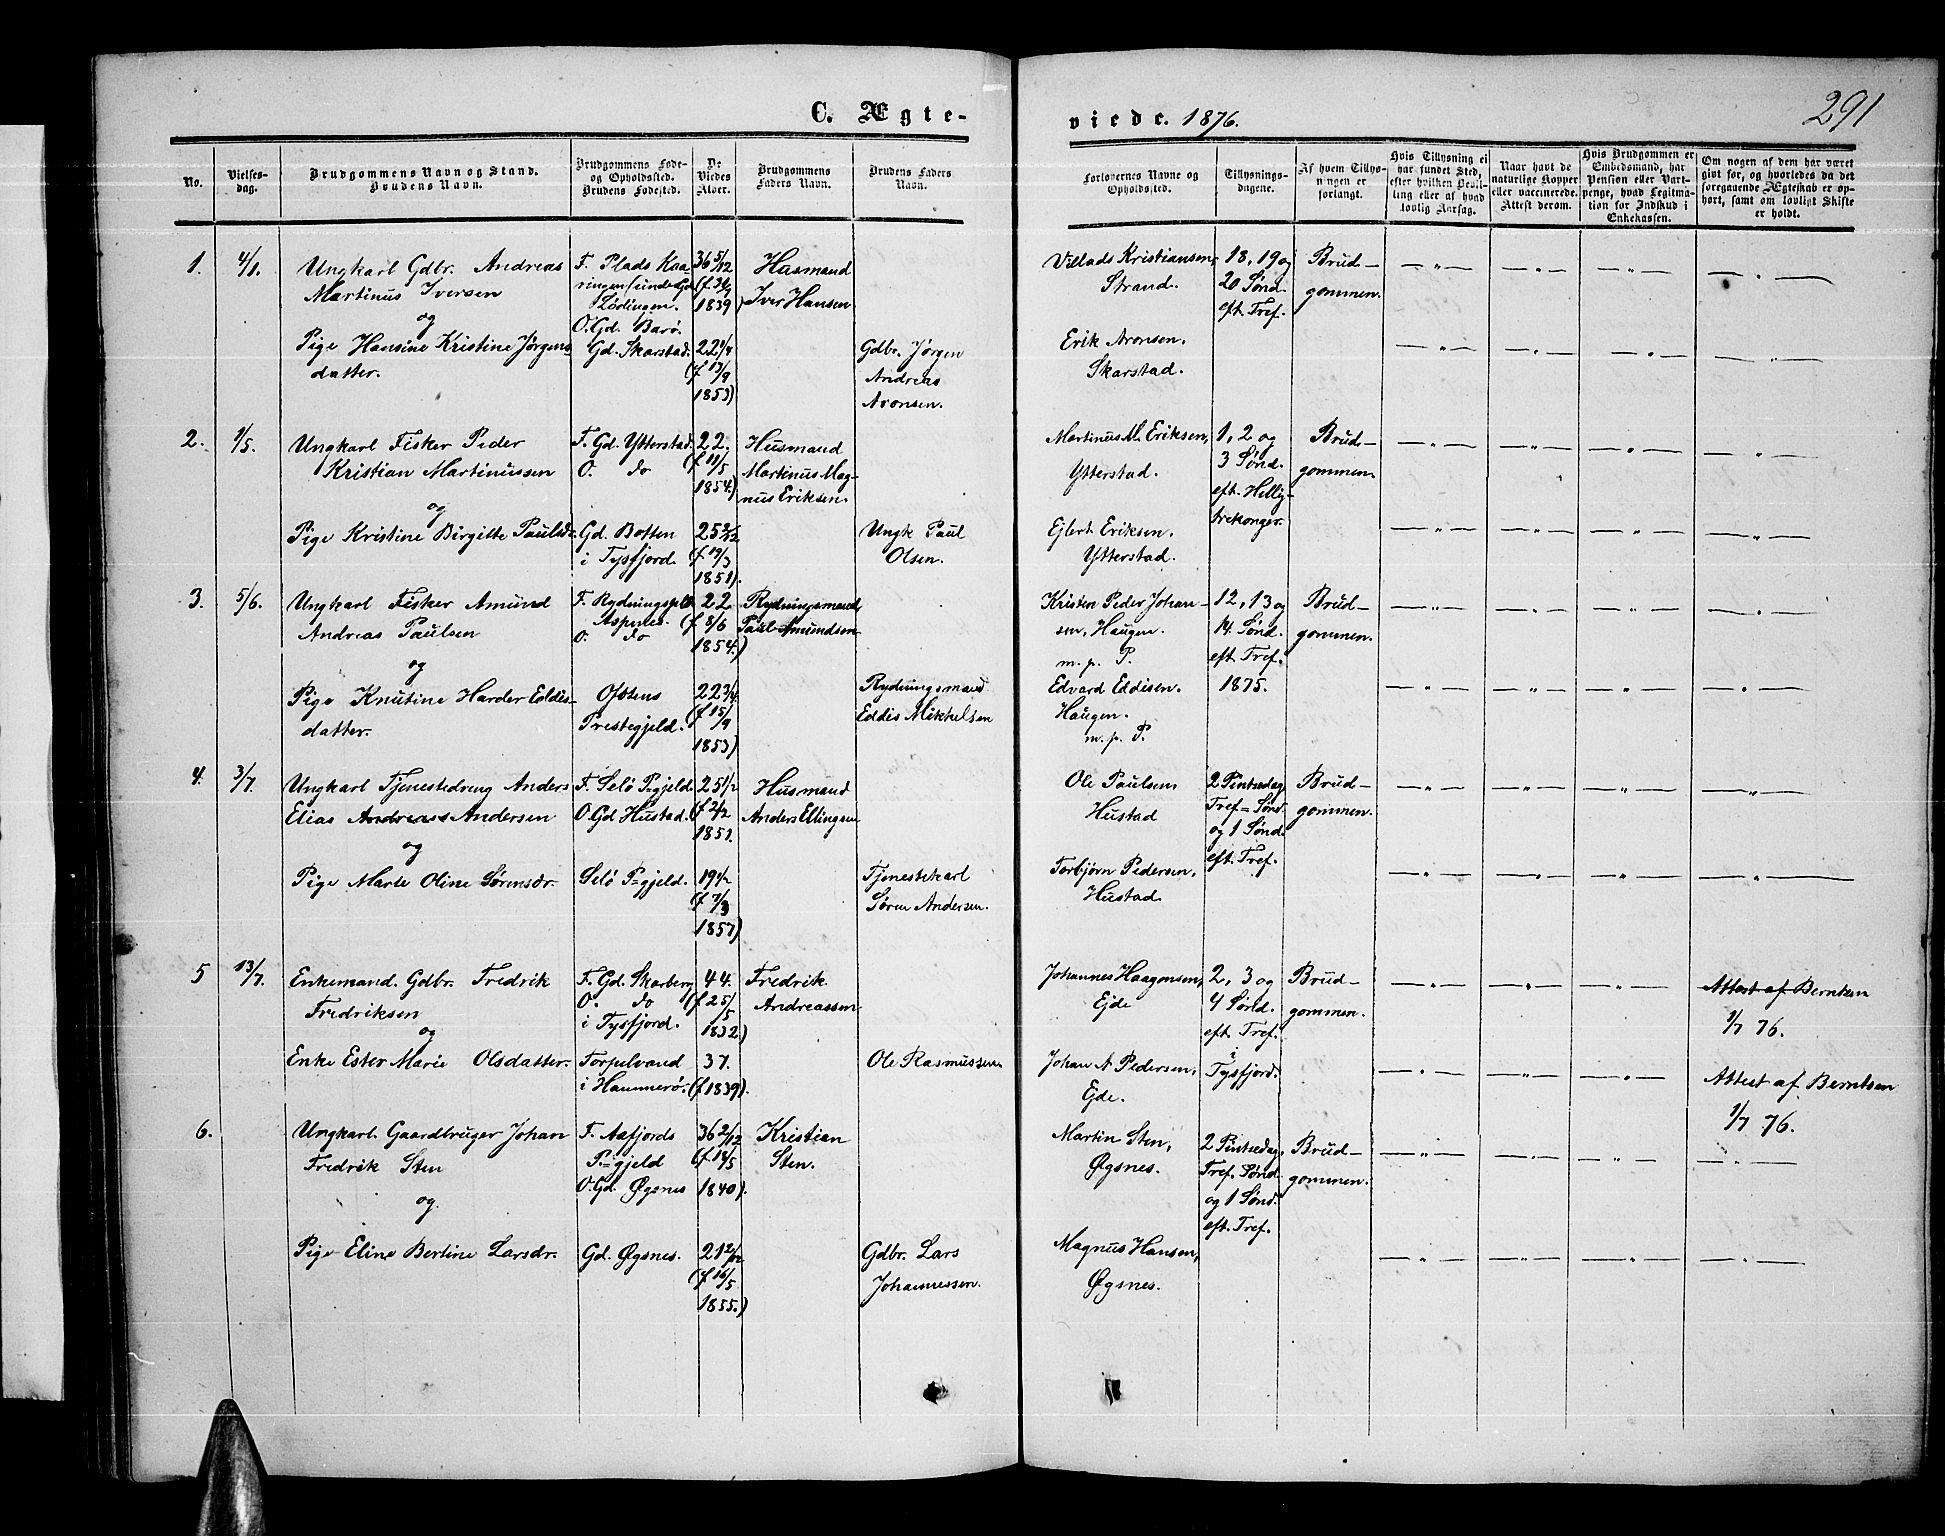 C. Ægte-
viede. 1876.
291
No.
Vielses-
dag.
Brudgommens Navn og Stand.
Brudens Navn.
Brudgommens Føde-
og Opholdssted.
Brudens Fødested.
De
Viedes
Alder.
Brudgommens
Faders Navn.
Brudens Faders
Navn.
Forlovernes Navne og
Opholdssted.
Tillysnings-
dagene.
Af hvem Tillys-
ningen er
forlangt.
Hvis Tillysning ei
har fundet Sted,
efter hvilken Bevil-
ling eller af hvad
lovlig Aarsag.
Naar havt de
naturlige Kopper
eller vaccinerede.
Attest derom.
Hvis Brudgommen er
Embedsmand, har
Pension eller Vart-
penge, hvad Legitima-
tion for Indskud i
Enkekassen.
Om nogen af dem har været
givt før, og hvorledes da det
foregaaende Ægteskab er op-
hørt, samt om lovligt Skifte
er holdt.
1. 4/1.
Ungkarl Gdbr. Andreas
Martinus Iversen
og
Pige Hansine Kristine Jørgens-
datter.
F. Plads Kaa-
ringen under Gd
Lødingen.
O. Gd. Barø.
Gd. Skarstad.
36 5/12
1839)
22 1/4
(f 13/9
1853)
Husmand
Iver Hansen
Gdbr. Jørgen
Andreas
Aronsen.
Villads Kristiansen,
Strand.
Erik Aronsen.
Skarstad.
18, 19 og
20 Sønd.
eft. Tref.
Brud-
gommen.
2. 1/5.
Ungkarl Fisker Peder
Kristian Martinussen
og
Pige Kristine Birgitte Paulsdr.
F. Gd. Ytterstad.
O. do
Gd. Botten
i Tysfjord.
22.
(f 11/5
1854)
25 2/12
(f 19/3
1851).
Husmand
Martinus Mag-
nus Eriksen.
Ungk Paul
Olsen.
Martinus M. Eriksen,
Ytterstad.
Ejlert Eriksen.
Ytterstad.
1, 2 og
3 Sønd.
eft. Hellig-
trekonger.
Brud-
gommen.
3. 5/6.
Ungkarl Fisker Amund
Andreas Paulsen
og
Pige Knutine Harder Eddis-
datter.
F. Rydningspld
Aspenes.
O. do
Ofotens
Prestegjeld.
22
(f 8/6
1854.)
22 3/4.
(f 15/9
1853)
Rydningsmand
Paul Amundsen
Rydningsmand
Eddis Mikkelsen
Kristen Peder Johan-
sen, Haugen.
m. p. P.
Edvard Eddisen.
Haugen.
m. p. P.
12, 13 og
14. Sønd.
eft. Tref.
1875.
Brud-
gommen.
4. 3/7.
Ungkarl Tjenestedreng Anders
Elias Andreas Andersen
og
Pige Marte Oline Sørensdr.
F. Selø P=gjeld
O. Gd Hustad.
Selø P=gjeld.
25 1/2
(f 2/2
1851.
19 1/2
(f 7/3
1857)
Husmand
Anders Ellingsen
Tjenestekarl
Søren Andersen.
Ole Paulsen
Hustad
Torbjørn Pedersen,
Hustad.
2 Pintsedag,
Tref=Sønd.
og 1 Sønd.
eft. Tref.
Brud-
gommen.
5 13/7.
Enkemand. Gdbr. Fredrik
Fredriksen
og
Enke Ester Marie Olsdatter.
F. Gd. Skarberg
O. do
i Tysfjord.
Torpelvand
i Hammerø.
44.
(f 25/5
1832)
37.
(f 1839)
Fredrik
Andreassen
Ole Rasmussen
Johannes Haagensen,
Ejde
Johan A Pedersen,
Ejde.
2, 3 og
4 Sønd.
eft. Tref.
i
Tysfjord.
Brud-
gommen.
Attest af Berntsen
1/7 76.
Attest af Berntsen
1/7 76.
6.
Ungkarl. Gaardbruger Johan
Fredrik Sten
og
Pige Eline Bertine Larsdr.
F. Aafjords
P=gjeld
O. Gd. Øgsnes
Gd. Øgsnes.
36 2/12
(f. 14/5
1840).
21 2/12
(f 16/5
1855.)
Kristian
Sten.
Gdbr. Lars
Johannessen.
Martin Sten,
Øgsnes.
Magnus Hansen,
Øgsnes.
2 Pintsedag,
Tref. Sønd.
og 1 Sønd.
eft. Tref.
Brud-
gommen.